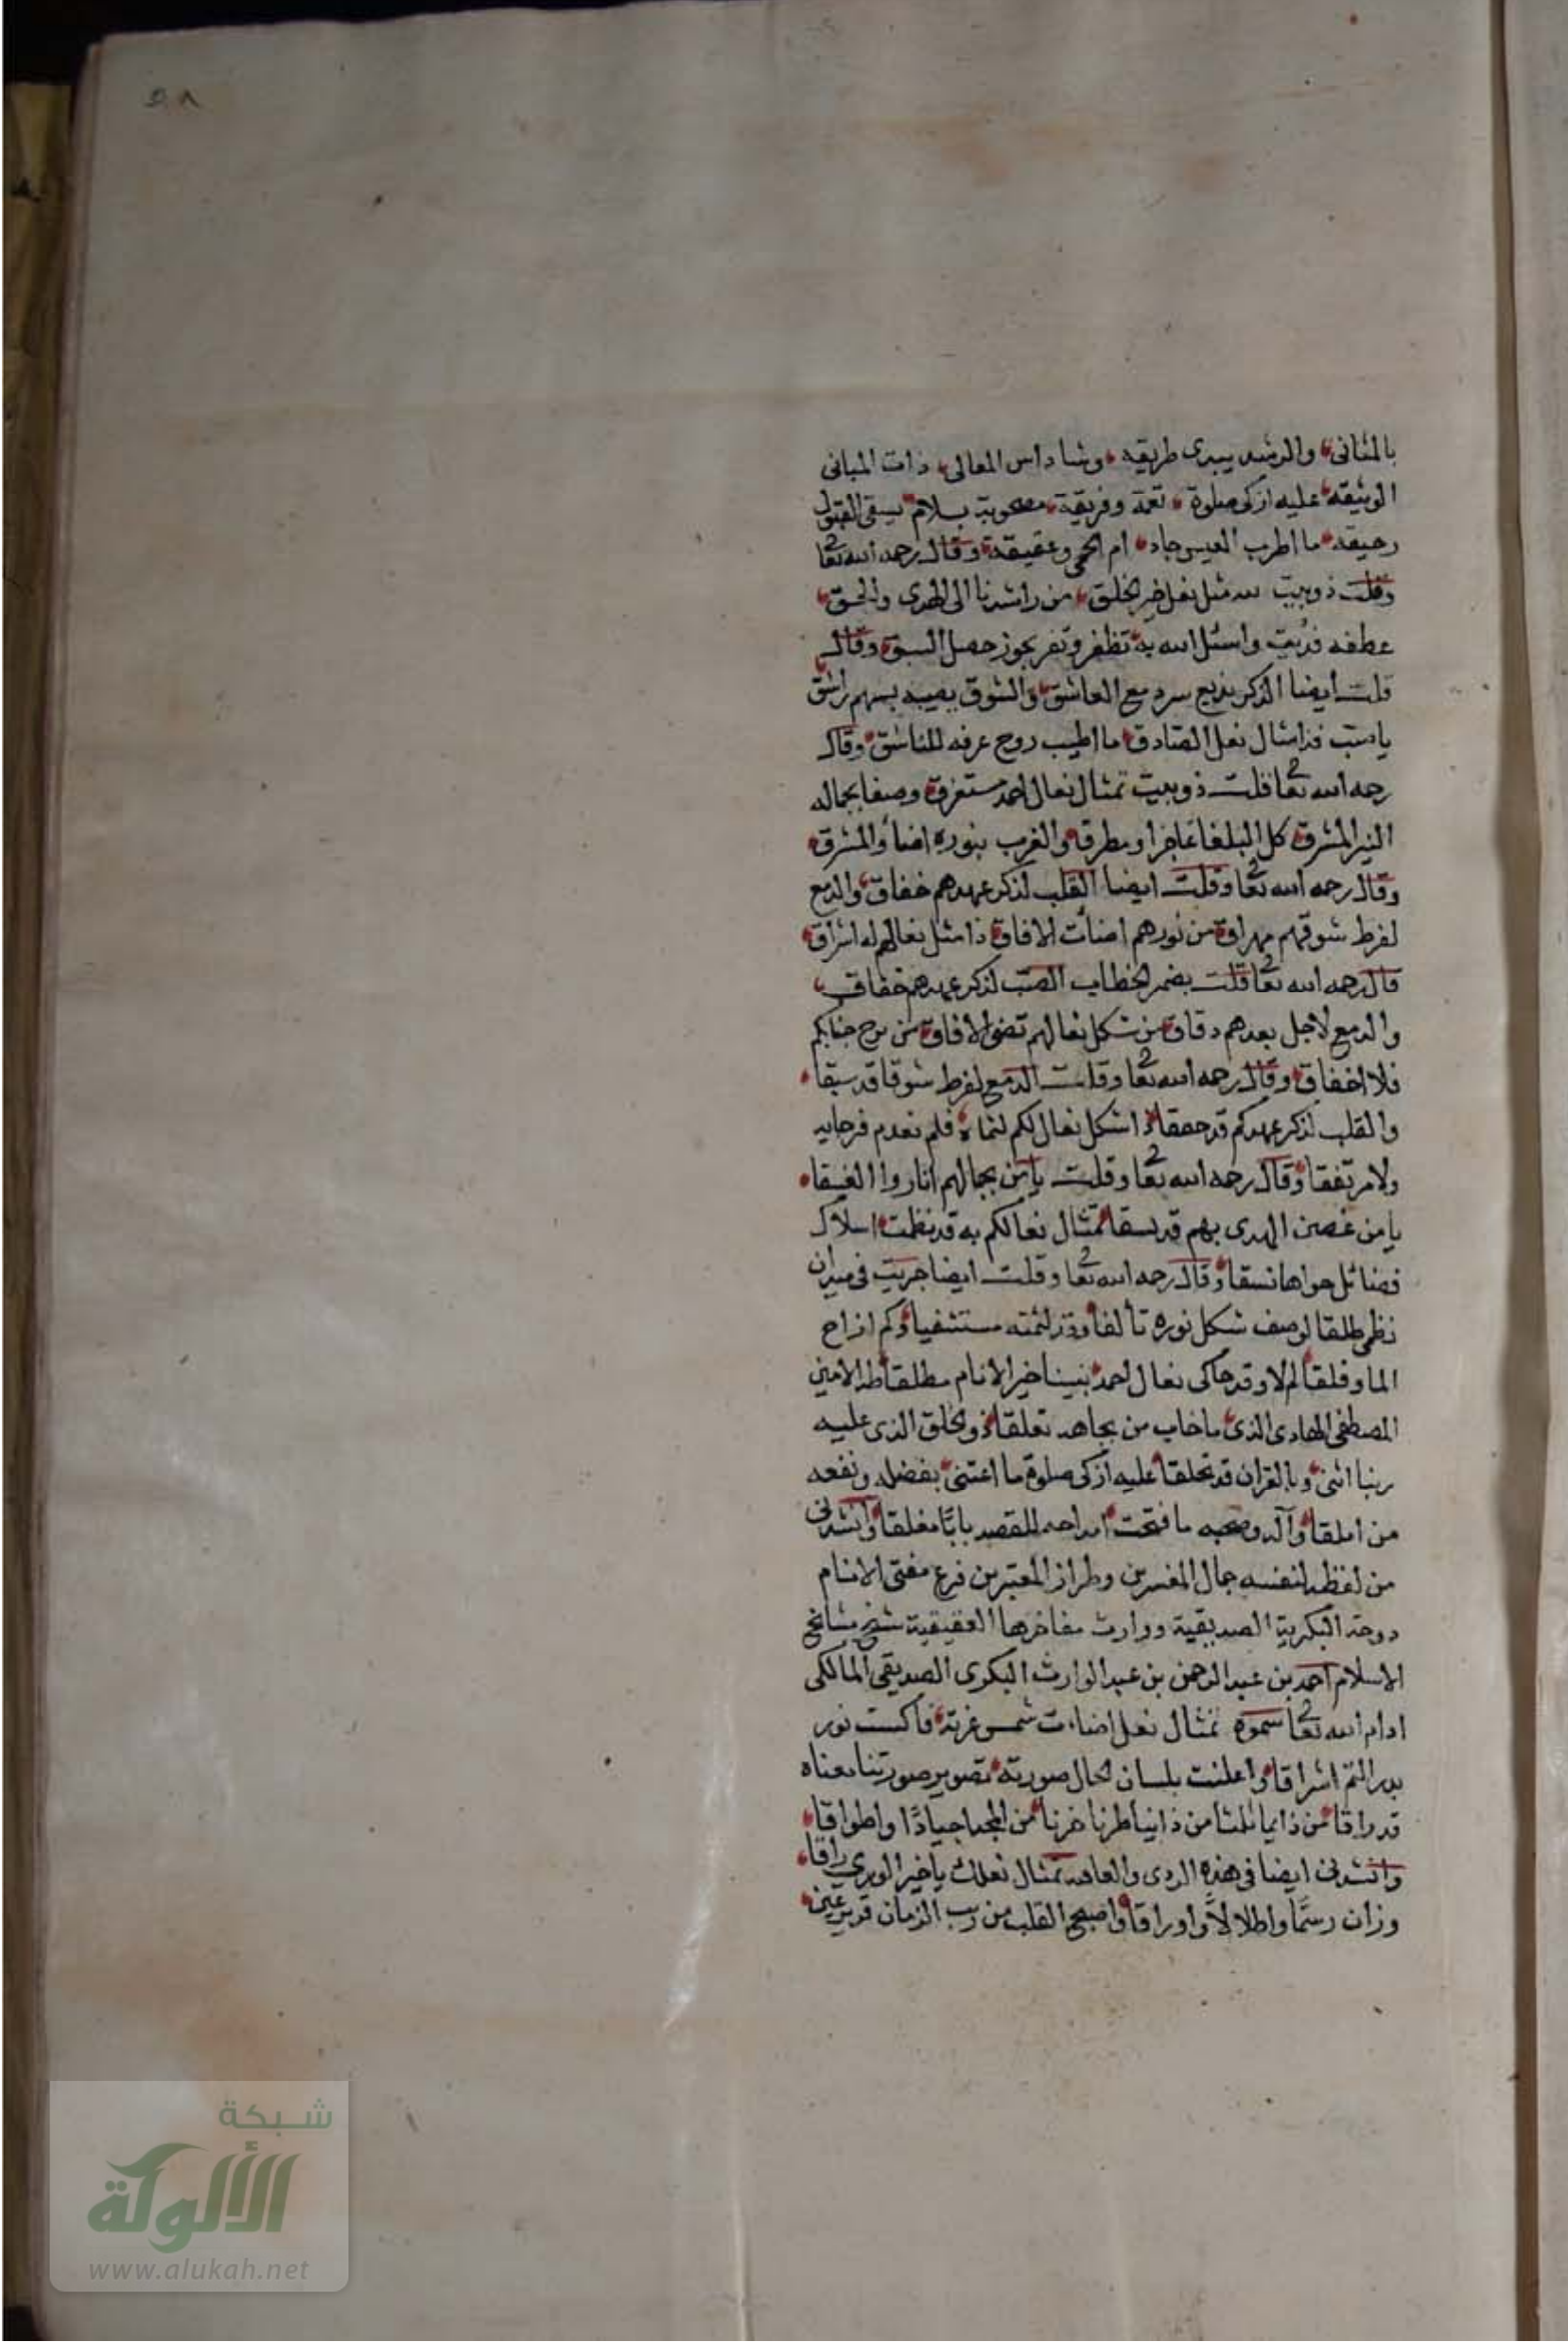 ٥٨
بالمثانى والرشد يبدى طريقه وشاد اس المعالى ذات المبانى
الوثيقه عليه ازكى صلوة تعمه وفريقة مصحوبة بسلام يسقى القبول
رحيقه ما اطرب العيس حاد ام الحمى وعقيقة وقال رحمه الله تعا
وقلت ذوبيت لله مثل نعل خير الخلق من راشدنا الى الهدى والحق
عطفه فديت واسئل الله به تظفر وتفز بجوز حصل السبق وقال
قلت ايضا الذكر يذيع سره مع العاشق والشوق يصيبه بسهم راشق
يا صب فذا مثال نعل الصادق ما اطيب روح عرفه للناشق وقال
رحمه الله تعا قلت ذوبيت تمثال نعال احمد مستغرق وصفا بجماله
النير المشرق كل البلغا عاجزا ومطرق والغرب بنوره اضا والمشرق
وقال رحمه الله تعا وقلت ايضا القلب لذكر عهدهم خفاق والدمع
لفرط شوقهم مهراق من نورهم اضات الافاق ذا مثل نعالهم له اشراق
قال رحمه الله تعا قلت بضمير الخطاب الصب لذكر عهدهم خفاق
والدمع لاجل بعدهم دقاق من شكل نعالهم تضئ الافاق من مدح جنابكم
فلا اخفاق وقال رحمه الله تعا وقلت الدمع لفرط شوقا قد سبقا
والقلب لذكر عهدكم قد خفقا اشكل نعال لكم لثماه فلم نعدم فرحا به
ولا مرتفقا وقال رحمه الله تعا وقلت يا من بجمالهم اناروا الغسقا
يا من غصن الهدى بهم قد بسقا تمثال نعالكم به قد نظمت اسلاك
فضائل حواها نسقا وقال رحمه الله تعا وقلت ايضا جريت فى ميدان
نظمى طلقا لوصف شكل نوره تألقا وقد لثمته مستشفيا وكم ازاح
الما وقلقا لم لا وقد حاكى نعال احمد نبينا خير الانام مطلقا طه الامين
المصطفى الهادى الذى ما خاب من بجاهه تعلقا ذو الخلق الذى عليه
ربنا اثنى وبالقران قد تخلقا عليه ازكى صلوة ما اعتنى بفضله ونفعه
من املقا وآله وصحبه ما فتحت امداحه للقصد بابا مغلقا وانشدنى
من لفظه لنفسه جمال المفسرين وطراز المعتبرين فرع مفتى الانام
دوحة البكرية الصديقية ووارث مفاخرها العتيقية شيخ مشايخ
الاسلام احمد بن عبد الرحمن بن عبد الوارث البكرى الصديقى المالكى
ادام الله تعا سموه تمثال نعل اضاءت شمس غرته فاكست نور
بدر التم اشراقا واعلنت بلسان الحال صورته تصوير صورتنا معناه
قد راقا من ذا يماثلنا من ذا يناظرنا حزنا من المجد اجيادًا واطواقا
وانشدنى ايضا فى هذه الروى والقافيه تمثال نعلك يا خير الورى راقا
وزان رسمًا واطلالًا واوراقا واصبح القلب من ريب الزمان قرير عين
شبكة
الألوكة
www.alukah.net